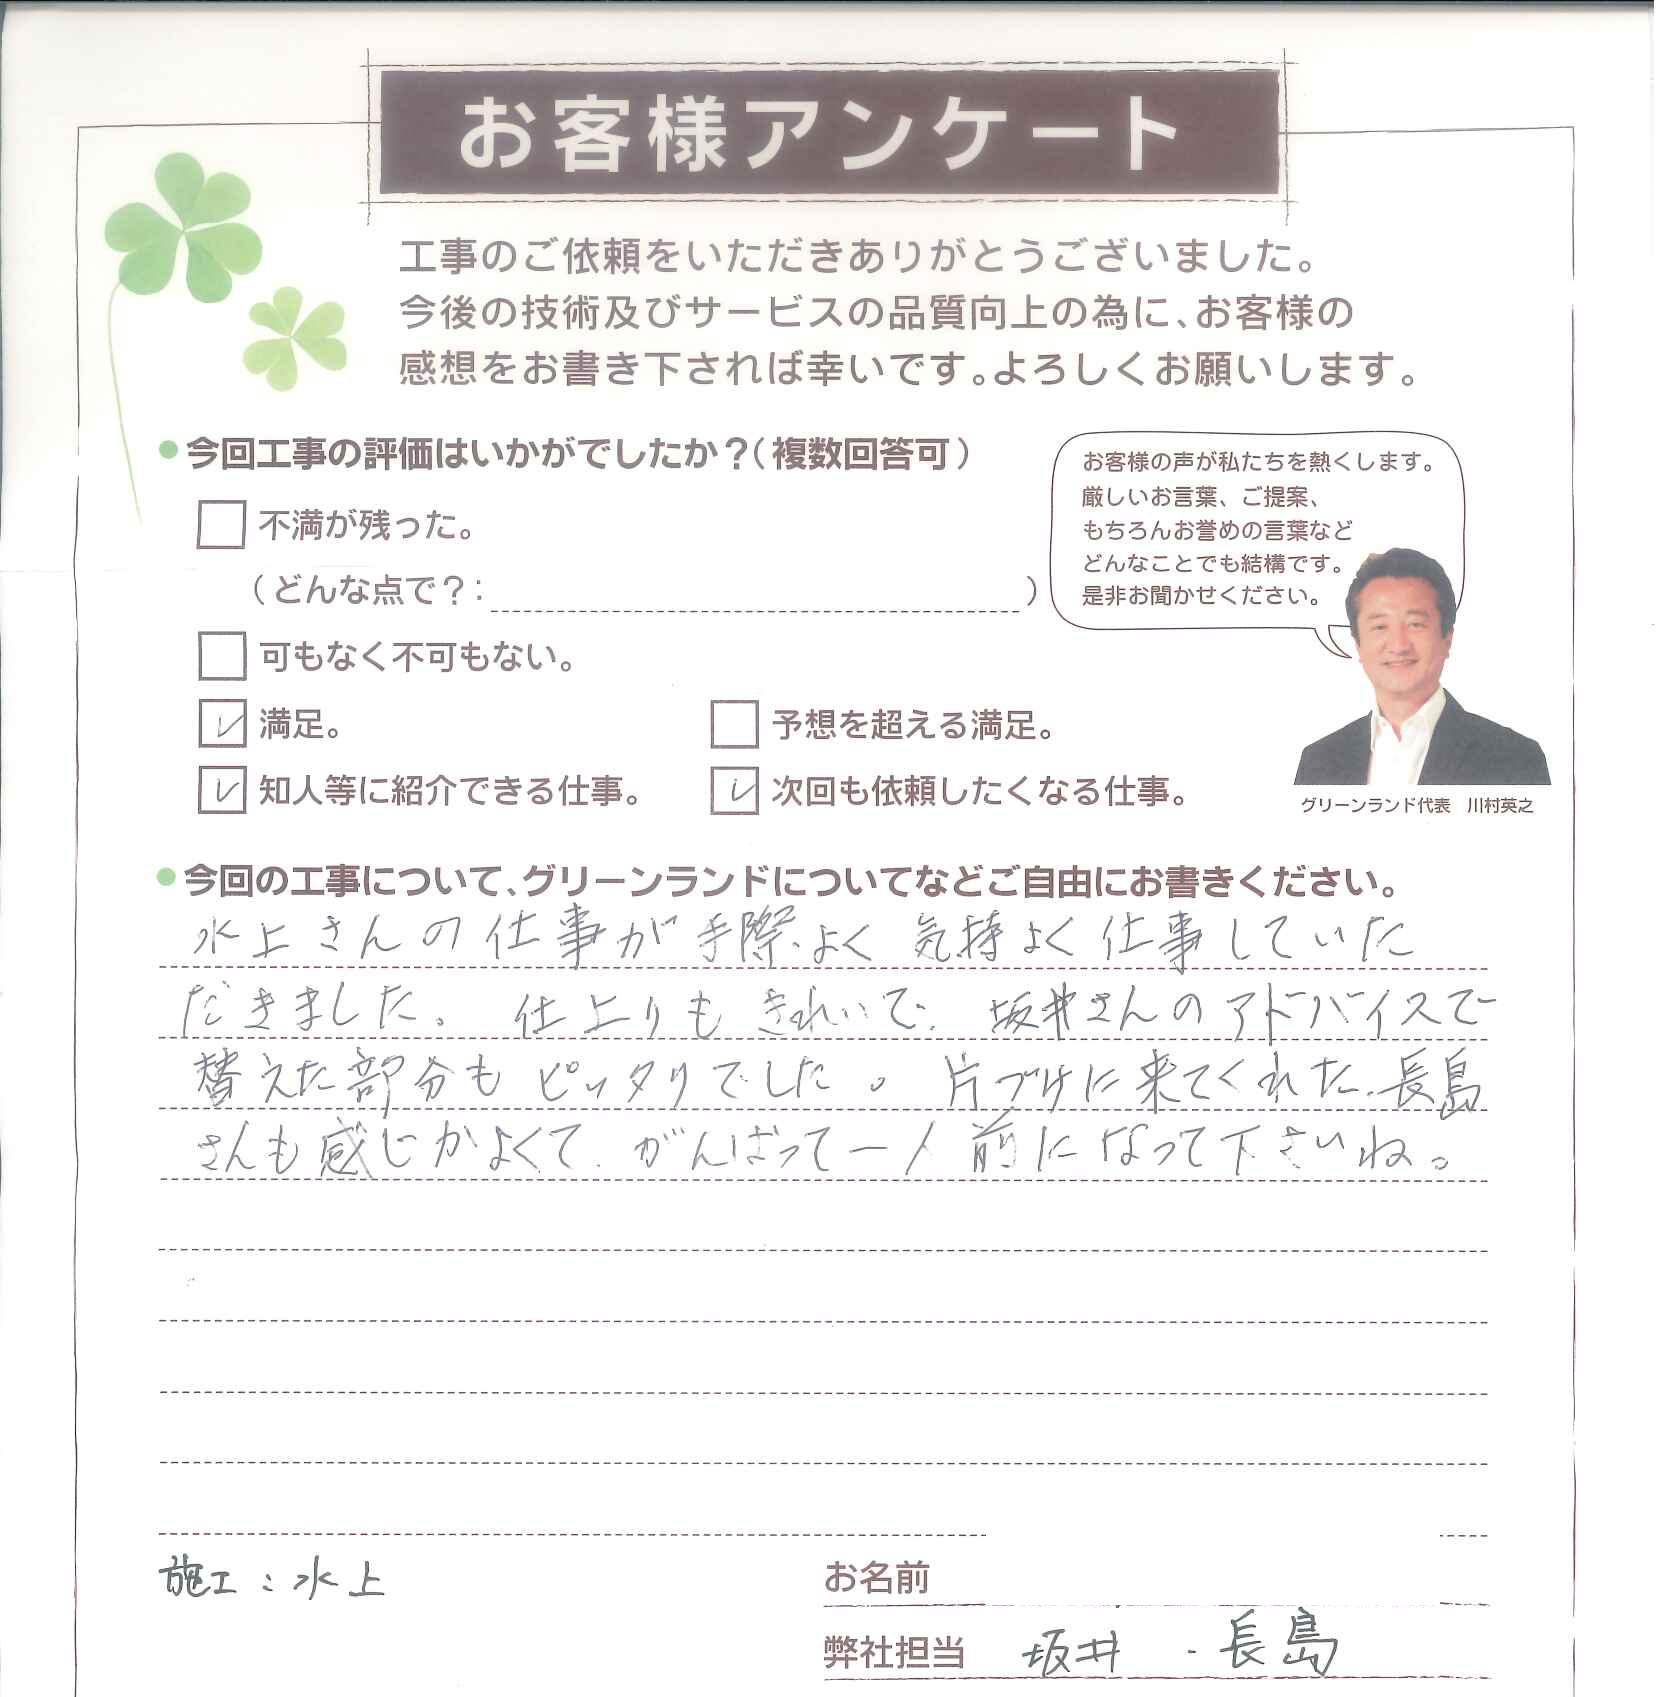 お客様アンケート
工事のご依頼をいただきありがとうございました。
今後の技術及びサービスの品質向上の為に、お客様の
感想をお書き下されば幸いです。よろしくお願いします。
今回工事の評価はいかがでしたか？（複数回答可）
不満が残った。
（どんな点で？：　）
可もなく不可もない。
満足。
予想を超える満足。
知人等に紹介できる仕事。
次回も依頼したくなる仕事。
お客様の声が私たちを熱くします。
厳しいお言葉、ご提案、
もちろんお誉めの言葉など
どんなことでも結構です。
是非お聞かせください。
グリーンランド代表　川村英之
今回の工事について、グリーンランドについてなどご自由にお書きください。
水上さんの仕事が手際よく気持よく仕事していた
だきました。仕上りもきれいで、坂井さんのアドバイスで
替えた部分もピッタリでした。片づけに来てくれた、長島
さんも感じがよくて、がんばって一人前になって下さいね。
施工：水上
お名前
弊社担当　坂井・長島